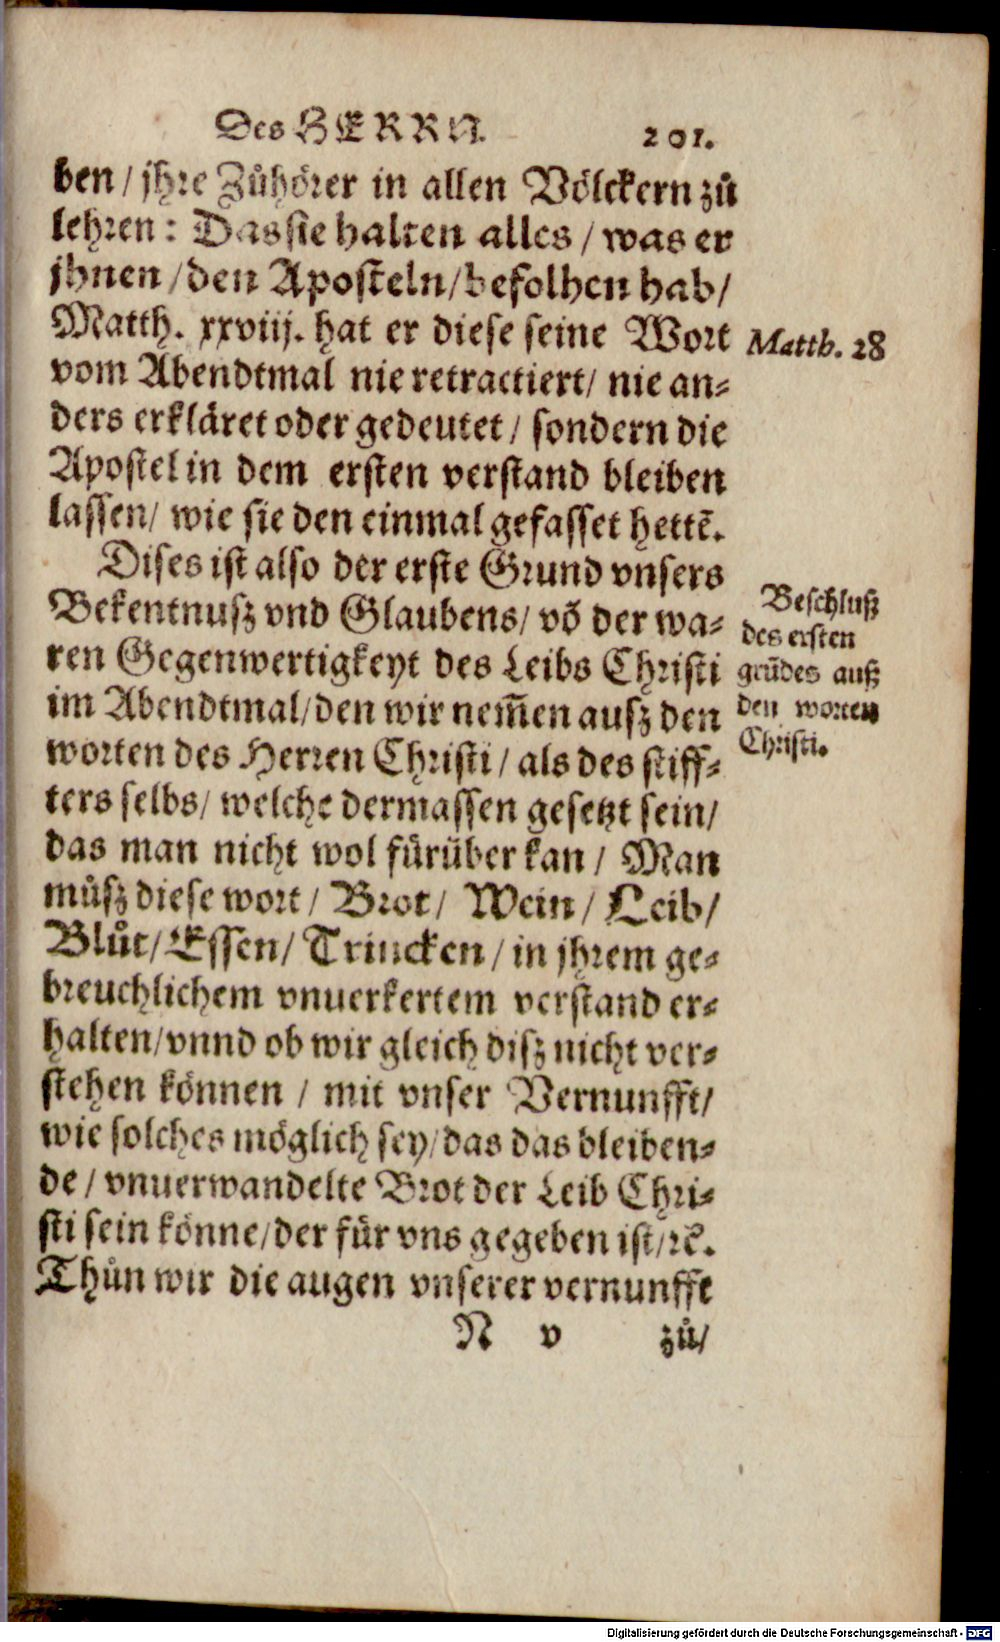 Des HERRN. 201.
ben / jhre Zůhörer in allen Völckern zů
lehren: Das sie halten alles / was er
jhnen / den Aposteln / befolhen hab /
Matth. xxviij. hat er diese seine Wort
Matth. 28
vom Abendtmal nie retractiert / nie an⸗
ders erkläret oder gedeutet / sondern die
Apostel in dem ersten verstand bleiben
lassen / wie sie den einmal gefasset hettē.
Dises ist also der erste Grund vnsers
Bekentnusz vnd Glaubens / võ der wa⸗
ren Gegenwertigkeyt des Leibs Christi
im Abendtmal / den wir nem̃en ausz den
worten des Herren Christi / als des stiff⸗
ters selbs / welche dermassen gesetzt sein /
Beschluß
des ersten
grũdes auß
den worten
Christi.
das man nicht wol fürüber kan / Man
můsz diese wort / Brot / Wein / Leib /
Blůt / Essen / Trincken / in jhrem ge⸗
breuchlichem vnuerkertem verstand er⸗
halten / vnnd ob wir gleich disz nicht ver⸗
stehen können / mit vnser Vernunfft /
wie solches möglich sey / das das bleiben⸗
de / vnuerwandelte Brot der Leib Chri⸗
sti sein könne / der für vns gegeben ist / ꝛc.
Thůn wir die augen vnserer vernunfft
N v zů /
Digitalisierung gefördert durch die Deutsche Forschungsgemeinschaft - DFG